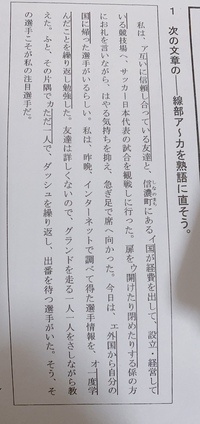 1 次の文章の――線部ア〜カを熟語に直そう。
私は、ア互いに信頼し合っている友達と、信濃町にあるイ国が経費を出して、設立・経営して
いる競技場へ、サッカー日本代表の試合を観戦しに行った。扉をウ開けたり閉めたりする係の方
にお礼を言いながら、はやる気持ちを抑え、急ぎ足で席へ向かった。今日は、エ外国から自分の
国に帰った選手がいるらしい。私は、昨晩、インターネットで調べて得た選手情報を、オ一度学
んだことを繰り返し勉強した。友達は詳しくないので、グランドを走る一人一人をさしながら教
えた。ふと、その片隅でカただ一人で、ダッシュを繰り返し、出番を待つ選手がいた。そう、そ
の選手こそが私の注目選手だ。